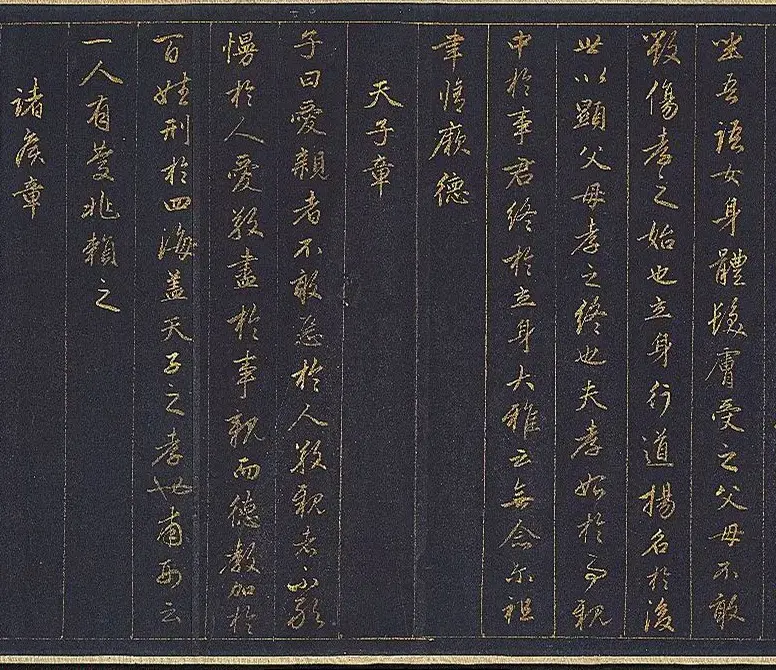 坐吾語女身體髮膚受之父母不敢
毀傷孝之始也立身行道揚名於後
世以顯父母孝之終也夫孝始於事親
中於事君終於立身大雅云無念尔祖
聿脩厥德
天子章
子曰愛親者不敢惡於人敬親者不敢
慢於人愛敬盡於事親而德教加於
百姓刑於四海蓋天子之孝也甫刑云
一人有慶兆賴之
諸侯章